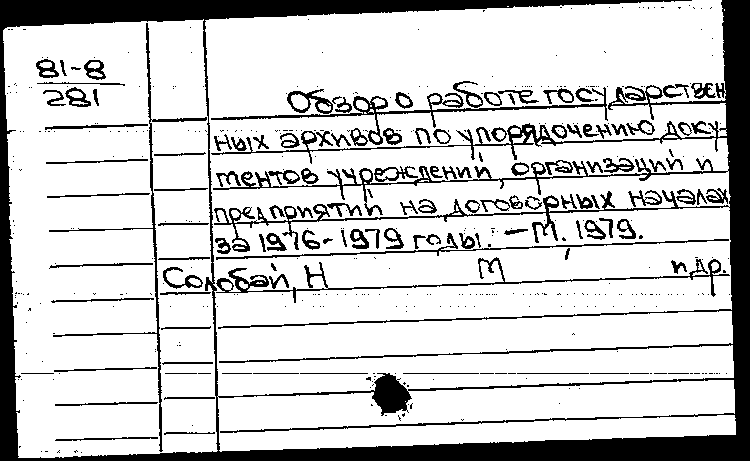 81-8
281
Обзор о работе государствен
ных архивов по упорядочению доку-
ментов учреждений, организаций и
предприятий на договорных началах
за 1976-1979 годы. - М. 1979.
Солобай, Н М и др.